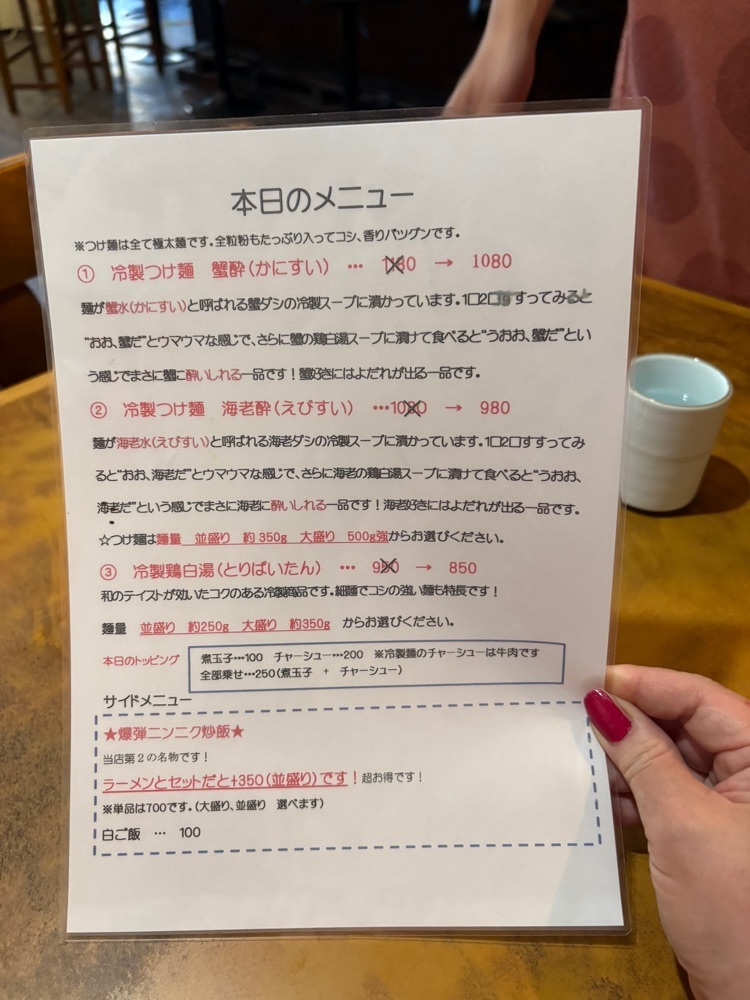 本日のメニュー
※つけ麺は全て極太麺です。全粒粉もたっぷり入ってコシ、香りバツグンです。
① 冷製つけ麺 蟹酔(かにすい) … → 1080
麺が蟹水(かにすい)と呼ばれる蟹ダシの冷製スープに漬かっています。1口2口すすってみると
“おお、蟹だ”とウマウマな感じで、さらに蟹の鶏白湯スープに漬けて食べると“うおお、蟹だ”とい
う感じでまさに蟹に酔いしれる一品です！蟹好きにはよだれが出る一品です。
② 冷製つけ麺 海老酔(えびすい) … → 980
麺が海老水(えびすい)と呼ばれる海老ダシの冷製スープに漬かっています。1口2口すすってみ
ると“おお、海老だ”とウマウマな感じで、さらに海老の鶏白湯スープに漬けて食べると“うおお、
海老だ”という感じでまさに海老に酔いしれる一品です！海老好きにはよだれが出る一品です。
☆つけ麺は麺量 並盛り 約350g 大盛り 500g強からお選びください。
③ 冷製鶏白湯(とりぱいたん) … → 850
和のテイストが効いたコクのある冷製商品です。細麺でコシの強い麺も特長です！
麺量 並盛り 約250g 大盛り 約350g からお選びください。
本日のトッピング 煮玉子…100 チャーシュー…200 ※冷製麺のチャーシューは牛肉です
全部乗せ…250(煮玉子 + チャーシュー)
サイドメニュー
★爆弾ニンニク炒飯★
当店第２の名物です！
ラーメンとセットだと+350(並盛り)です！超お得です！
※単品は700です。(大盛り、並盛り 選べます)
白ご飯 … 100